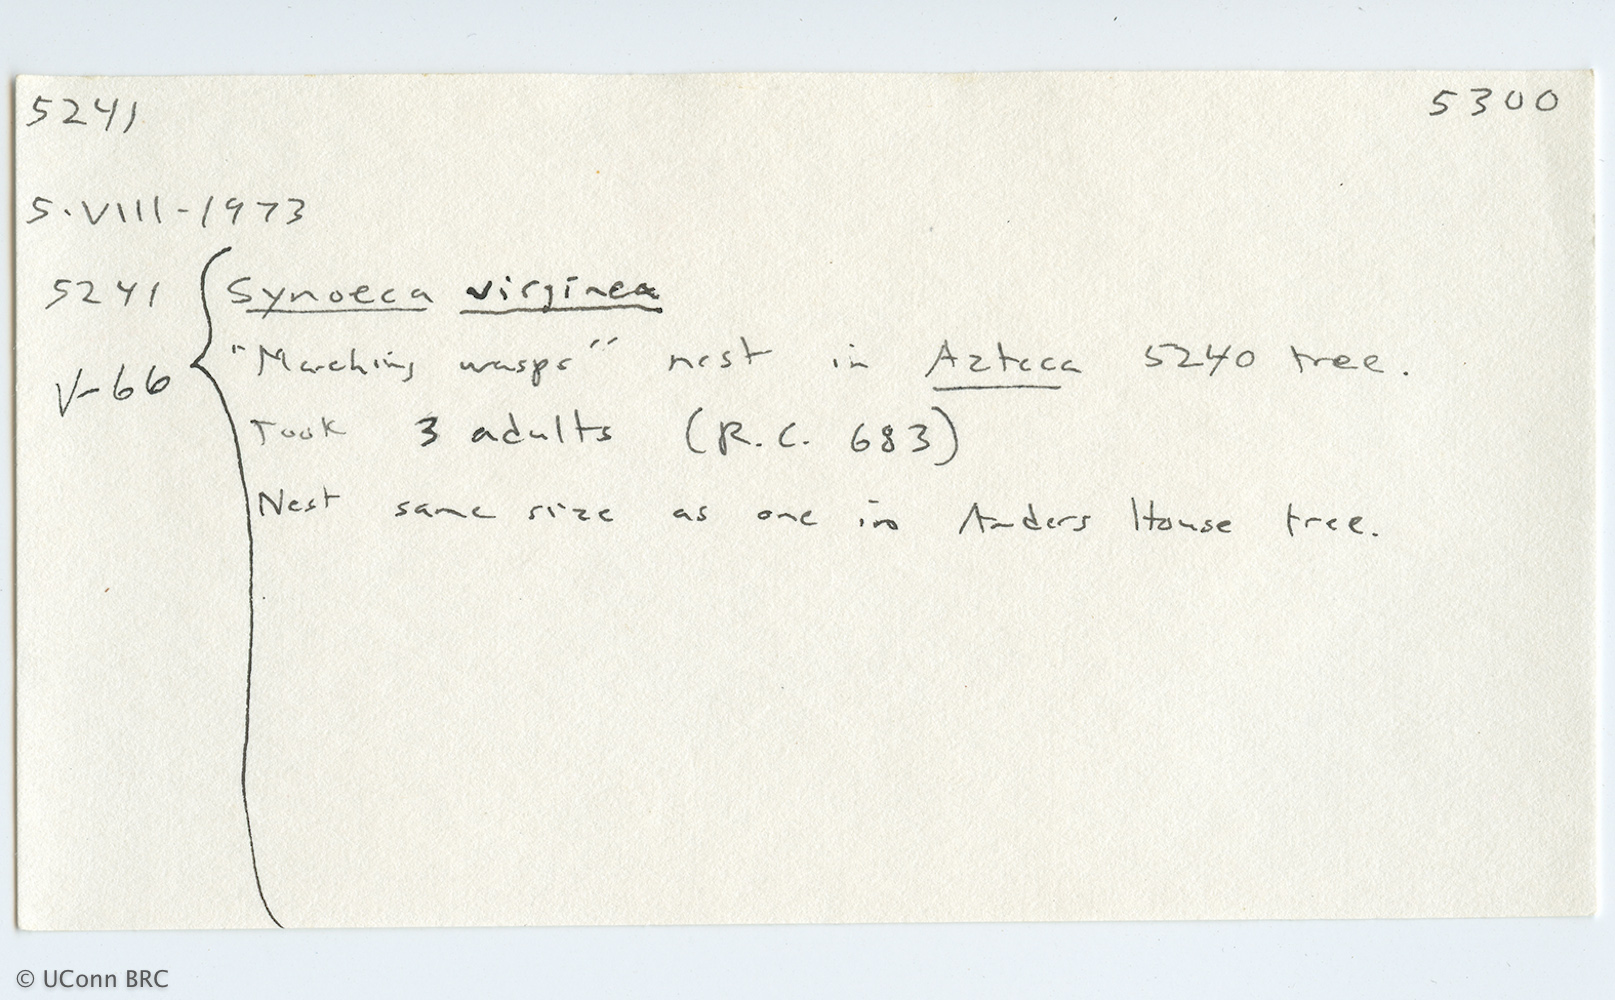 5241 5300
5·VIII-1973
5241 Synoeca virginea
"Marching wasps" nest in Azteca 5240 tree.
V-66
Took 3 adults (R.C. 683)
Nest same size as one in Anders House tree.
© UConn BRC